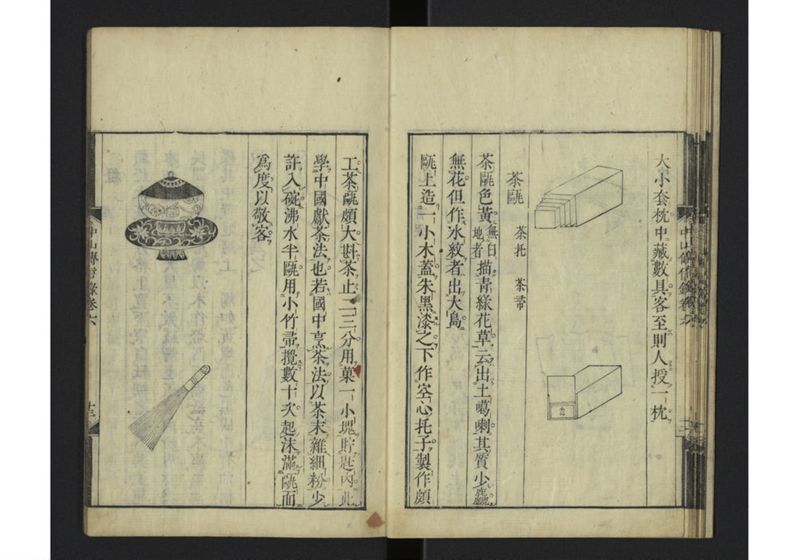 大小套枕中藏數具客至則人授一枕
茶甌 茶托 茶帚
茶甌色黃無白地者描青綠花草云出土噶喇其質少麤
無花但作水紋者出大島
甌上造一小木蓋朱黑漆之下作空心托子製作頗
工茶甌頗大斟茶止二三分用菓一小塊貯匙內此
學中國獻茶法也若國中烹茶法以茶末雜細粉少
許入碗沸水半甌用小竹帚攪數十次起沫滿甌面
為度以敬客
中山傳信錄卷六